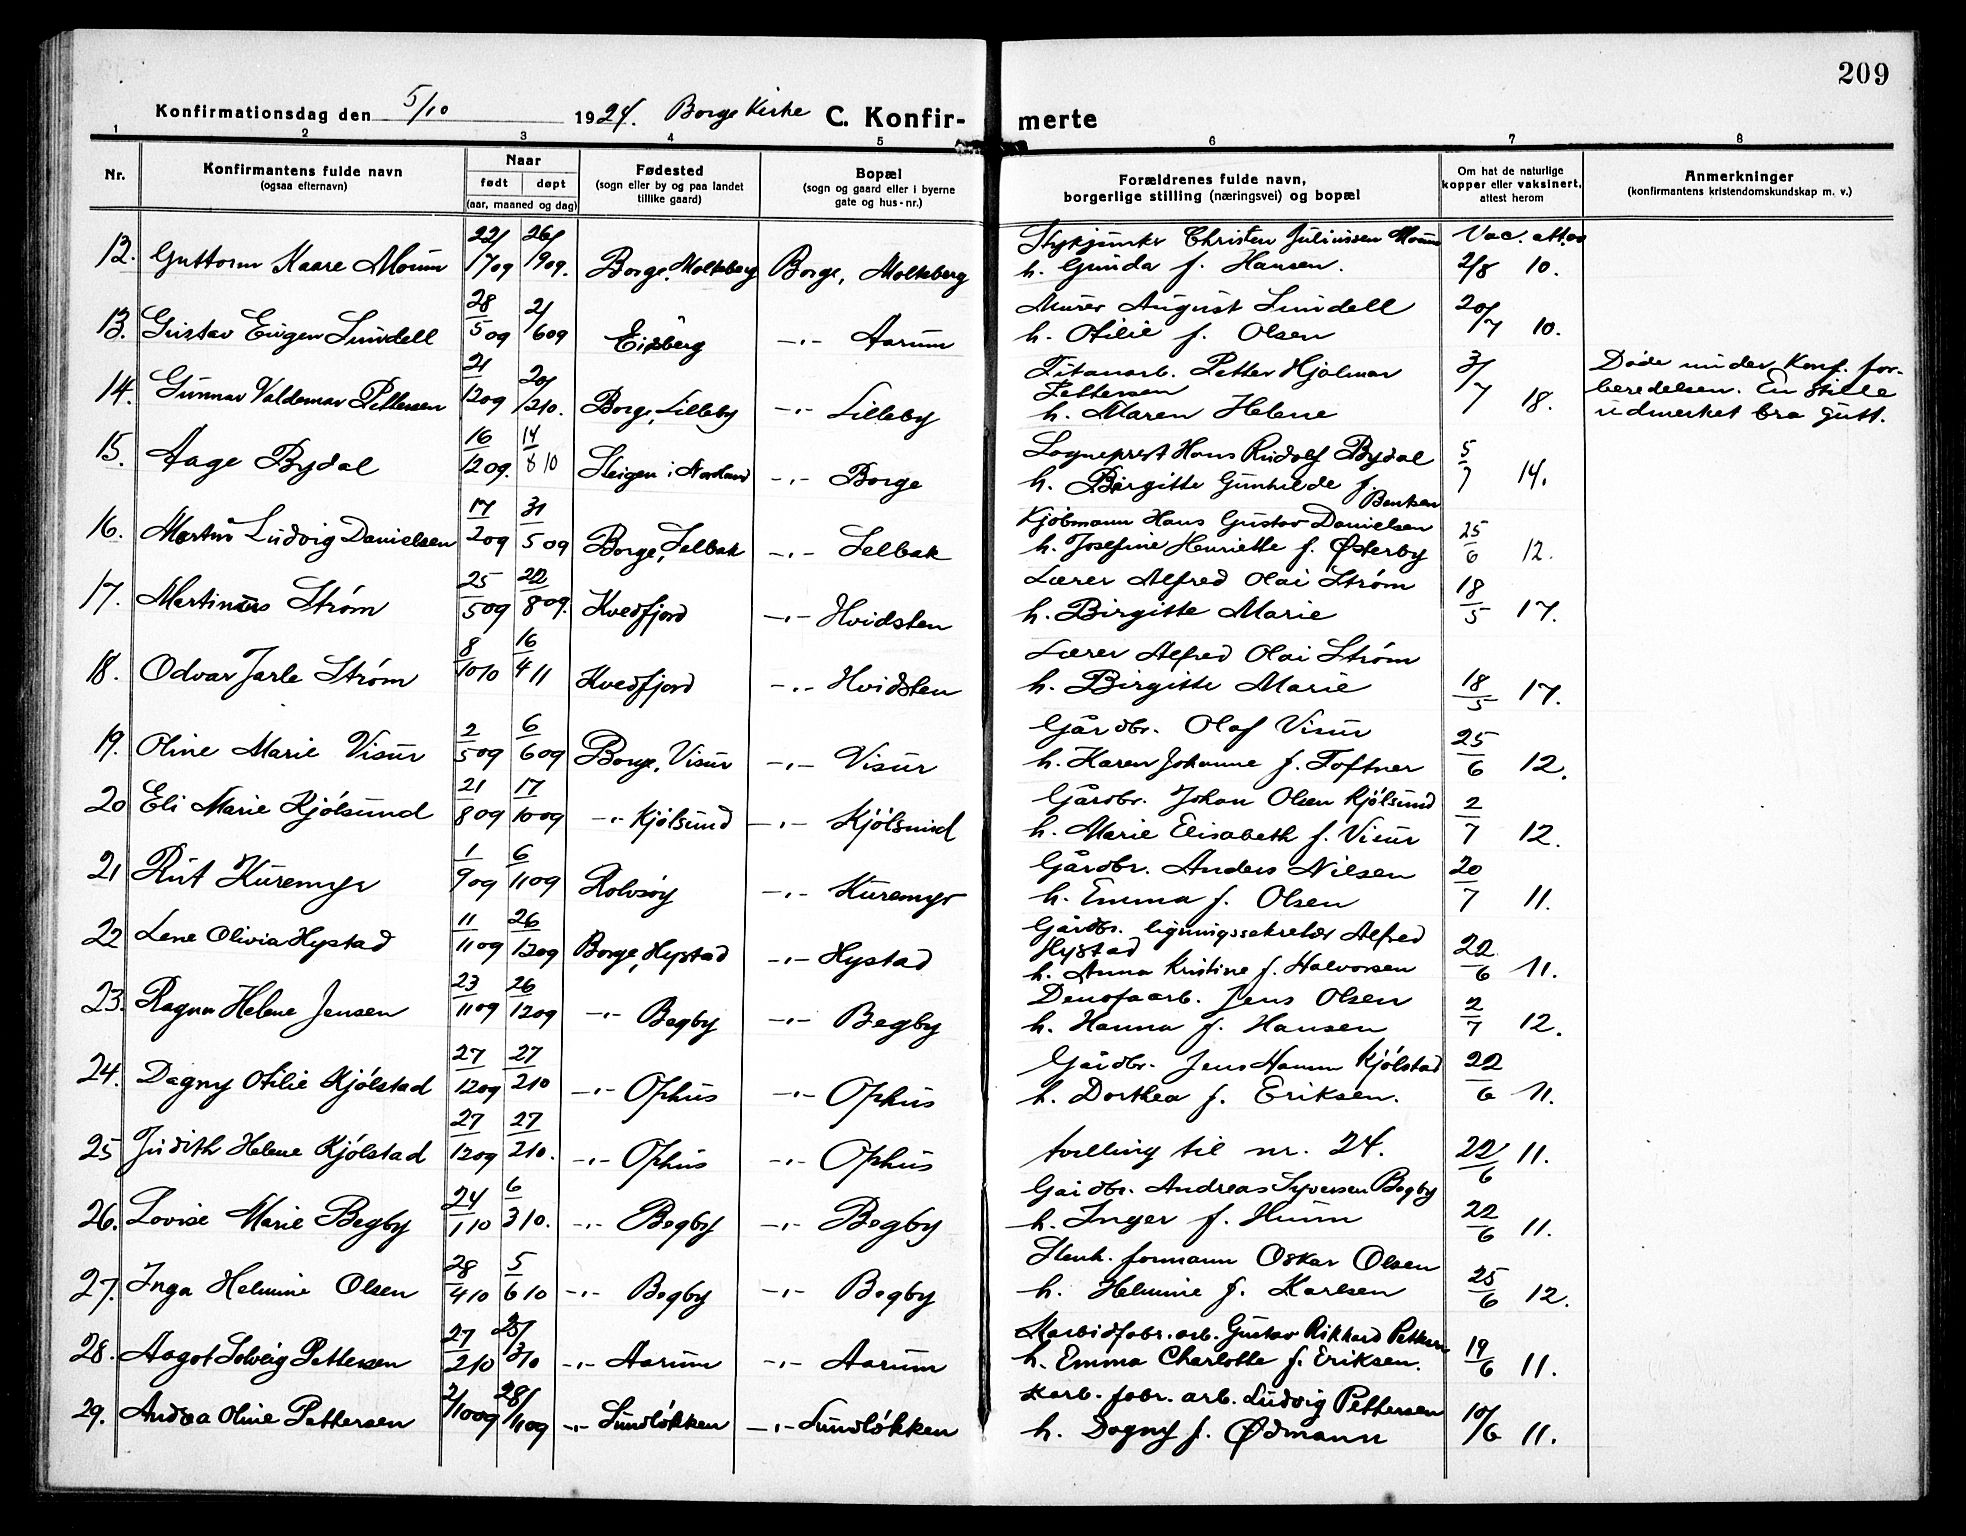 209
Konfirmationsdag den 5/10 1924. Borge Kirke C. Konfir- merte
1 2 3 4 5 6 7 8
Nr. Konfirmantens fulde navn (ogsaa efternavn) Naar født døpt (aar, maaned og dag) Fødested (sogn eller by og paa landet tillike gaard) Bopæl (sogn og gaard eller i byerne gate og hus-nr.) Forældrenes fulde navn, borgerlige stilling (næringsvei) og bopæl Om hat de naturlige kopper eller vaksinert, attest herom Anmerkninger (konfirmantens kristendomskundskap m. v.)
12. Guttorm Kaare Moum 22/1 09 26/9 09. Borge, Molteberg Borge, Molteberg Christen Juliussen Moum Vac. att. av
h. Gunda f. Hansen. 2/8 10.
13. Gustav Eugen Lundell 28/5 09 2/6 09 Eisberg -"- Aarum Murer August Lundell 20/7 10.
h. Otilie f. Olsen
14. Gunnar Valdemar Pettersen 21/12 09 20/2 10. Borge, Lilleby -"- Lilleby Titanarb. Petter Hjalmar Pettersen 3/7 18. Døde under Konf. for-
h. Maren Helene beredelsen. En stille
udmerket bra gutt.
15. Aage Bydal 16/12 09. 14/8 10 Steigen i Nordland -"- Borge Sogneprest Hans Rudolf Bydal 5/7 14.
h. Birgitte Gunhilde f. Bentsen
16. Martin Ludvig Danielsen 17/2 09 31/5 09 Borge, Selbak -"- Selbak Kjøbmann Hans Gustav Danielsen 25/6 12.
h. Josefine Henriette f. Østerby
17. Martinus Strøm 25/5 09 22/8 09. Kvedfjord -"- Hvidsten Lærer Alfred Olai Strøm 18/5 17.
h. Birgitte Marie
18. Odvar Jarle Strøm 8/10 10 16/4 11 Kvedfjord -"- Hvidsten Lærer Alfred Olai Strøm
h. Birgitte Marie 18/5 17.
19. Oline Marie Visur 2/5 09 6/6 09 Borge, Visur -"- Visur Gårdbr. Olaf Visur 25/6 12.
h. Karen Johanne f. Toftner
20 Eli Marie Kjølsund 21/8 09 17/10 09 -"- Kjølsund -"- Kjølsund Gårdbr. Johan Olsen Kjølsund 2/7 12.
h. Marie Elisabeth f. Visur
21 Rut Kuremyr 1/9 09 6/11 09 Rolvsøy -"- Kuremyr Gårdbr. Anders Nilsen 20/7 11.
h. Emma f. Olsen
22 Lene Olivia Hystad 11/11 09 26/12 09 Borge, Hystad -"- Hystad Gårdbr. ligningssekretær Alfred Hystad 22/6 11.
h. Anna Kristine f. Halvorsen
23. Ragna Helene Jensen 23/11 09 26/12 09 -"- Begby -"- Begby Denofaarb. Jens Olsen 2/7 12.
h. Hanna f. Hansen
24. Dagny Otilie Kjølstad 27/12 09 27/2 10 -"- Ophus -"- Ophus Gårdbr. Jens Hannn Kjølstad 22/6 11.
h. Dorthea f. Eriksen.
25 Judith Helene Kjølstad 27/12 09 27/2 10. -"- Ophus -"- Ophus tvilling til nr. 24. 22/6 11.
26. Lovise Marie Begby 24/1 10 6/3 10. -"- Begby -"- Begby Gårdbr. Andreas Syversen Begby
h. Inger f. Hunn 22/6 11.
27. Inga Helmine Olsen 28/4 10 5/6 10 -"- Begby -"- Begby Stenh. formann Oskar Olsen
h. Helmine f. Karlsen 25/6 12.
28. Aagot Solveig Pettersen 27/2 10 25/3 10 -"- Aarum -"- Aarum Karbidfabr. arb. Gustav Rikhard Pettersen 19/6 11.
h. Emma Charlotte f. Eriksen.
29. Andrea Oline Pettersen 2/10 09 28/11 09 -"- Sundløkken -"- Sundløkken Karb. fabr. arb. Ludvig Pettersen 10/6 11.
h. Dagny f. Ødmann